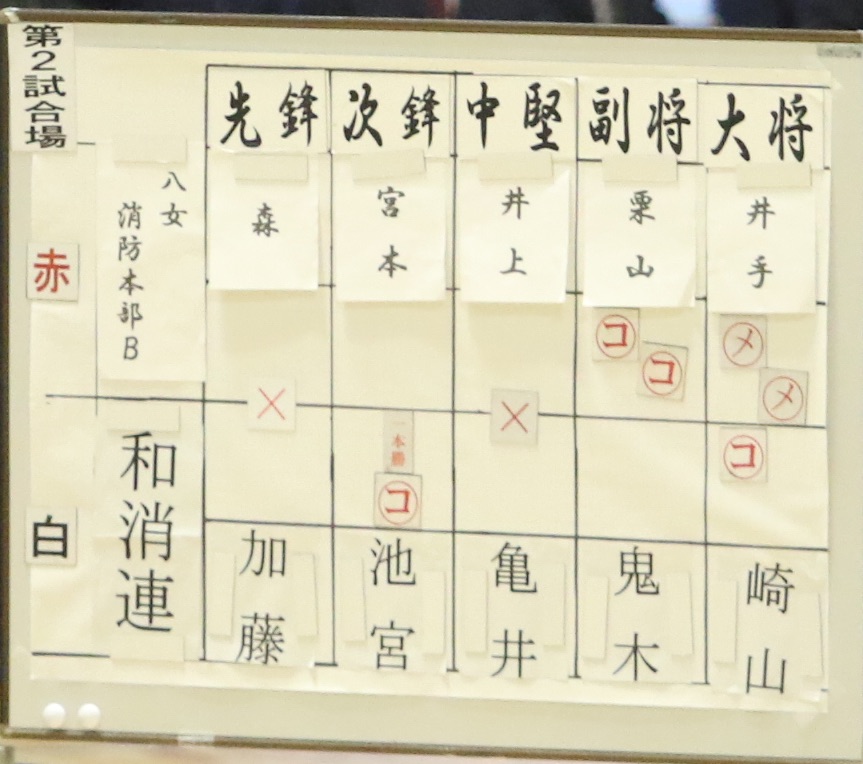 第2試合場
先鋒 次鋒 中堅 副将 大将
赤
八女
消防本部B
森 宮本 井上 栗山 井手
コ コ メ メ
× ×
一本勝
コ コ
白
和消連
加藤 池宮 亀井 鬼木 崎山